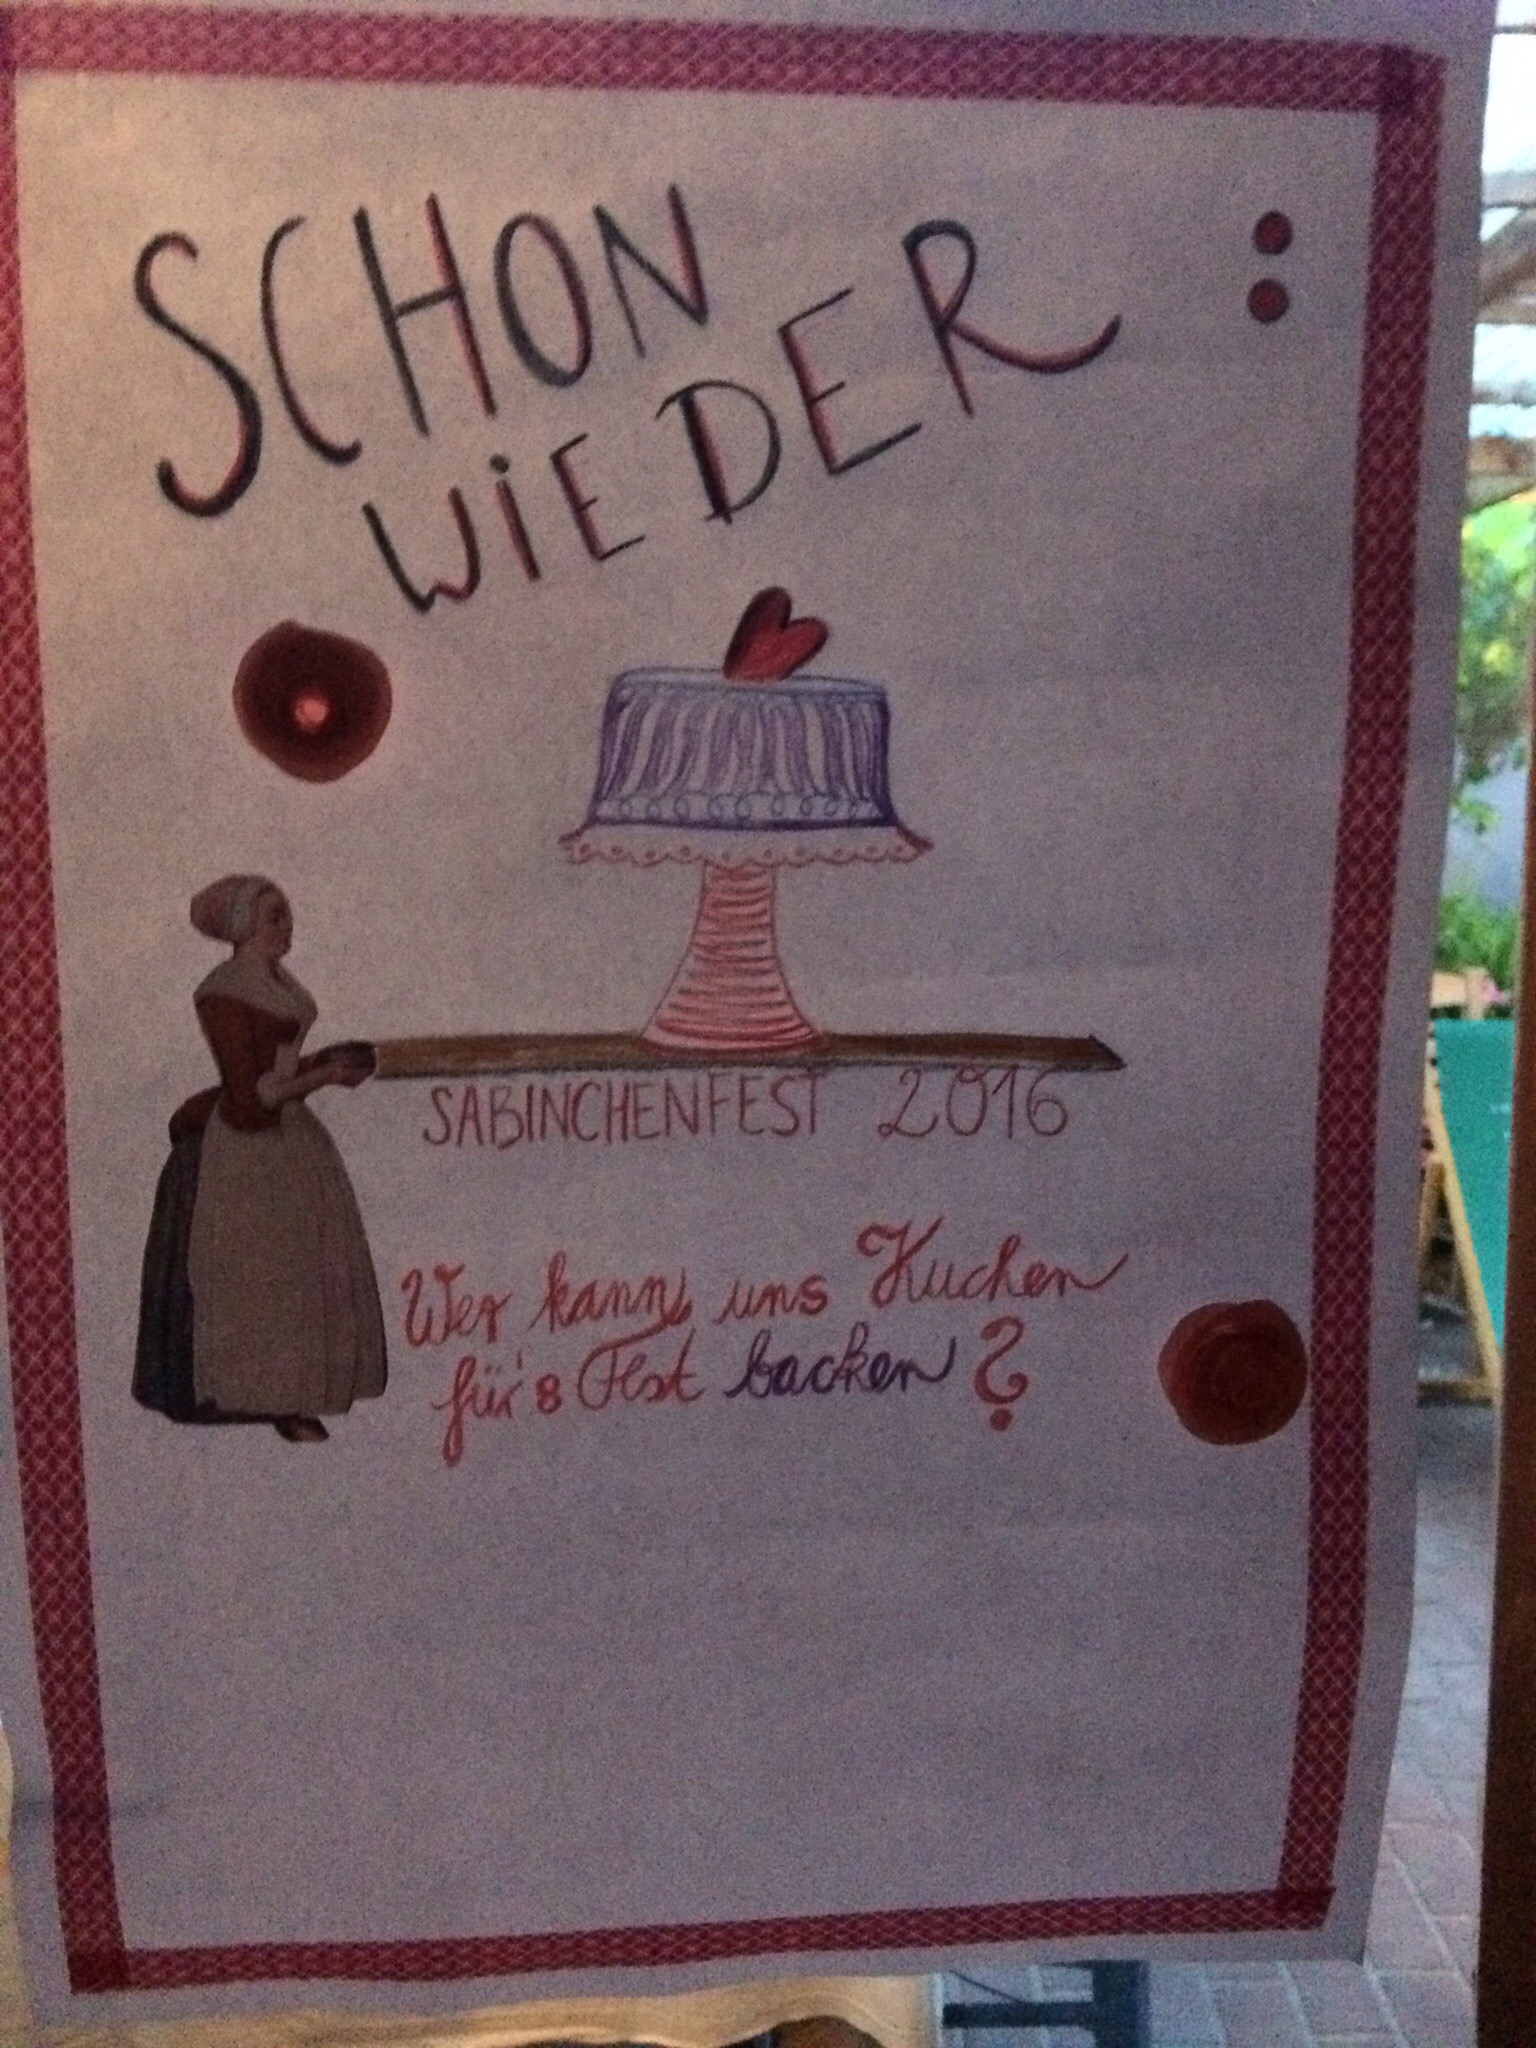 SCHON
WiEDER :
SABINCHENFEST 2016
Wer kann uns Kuchen
für's Fest backen ?